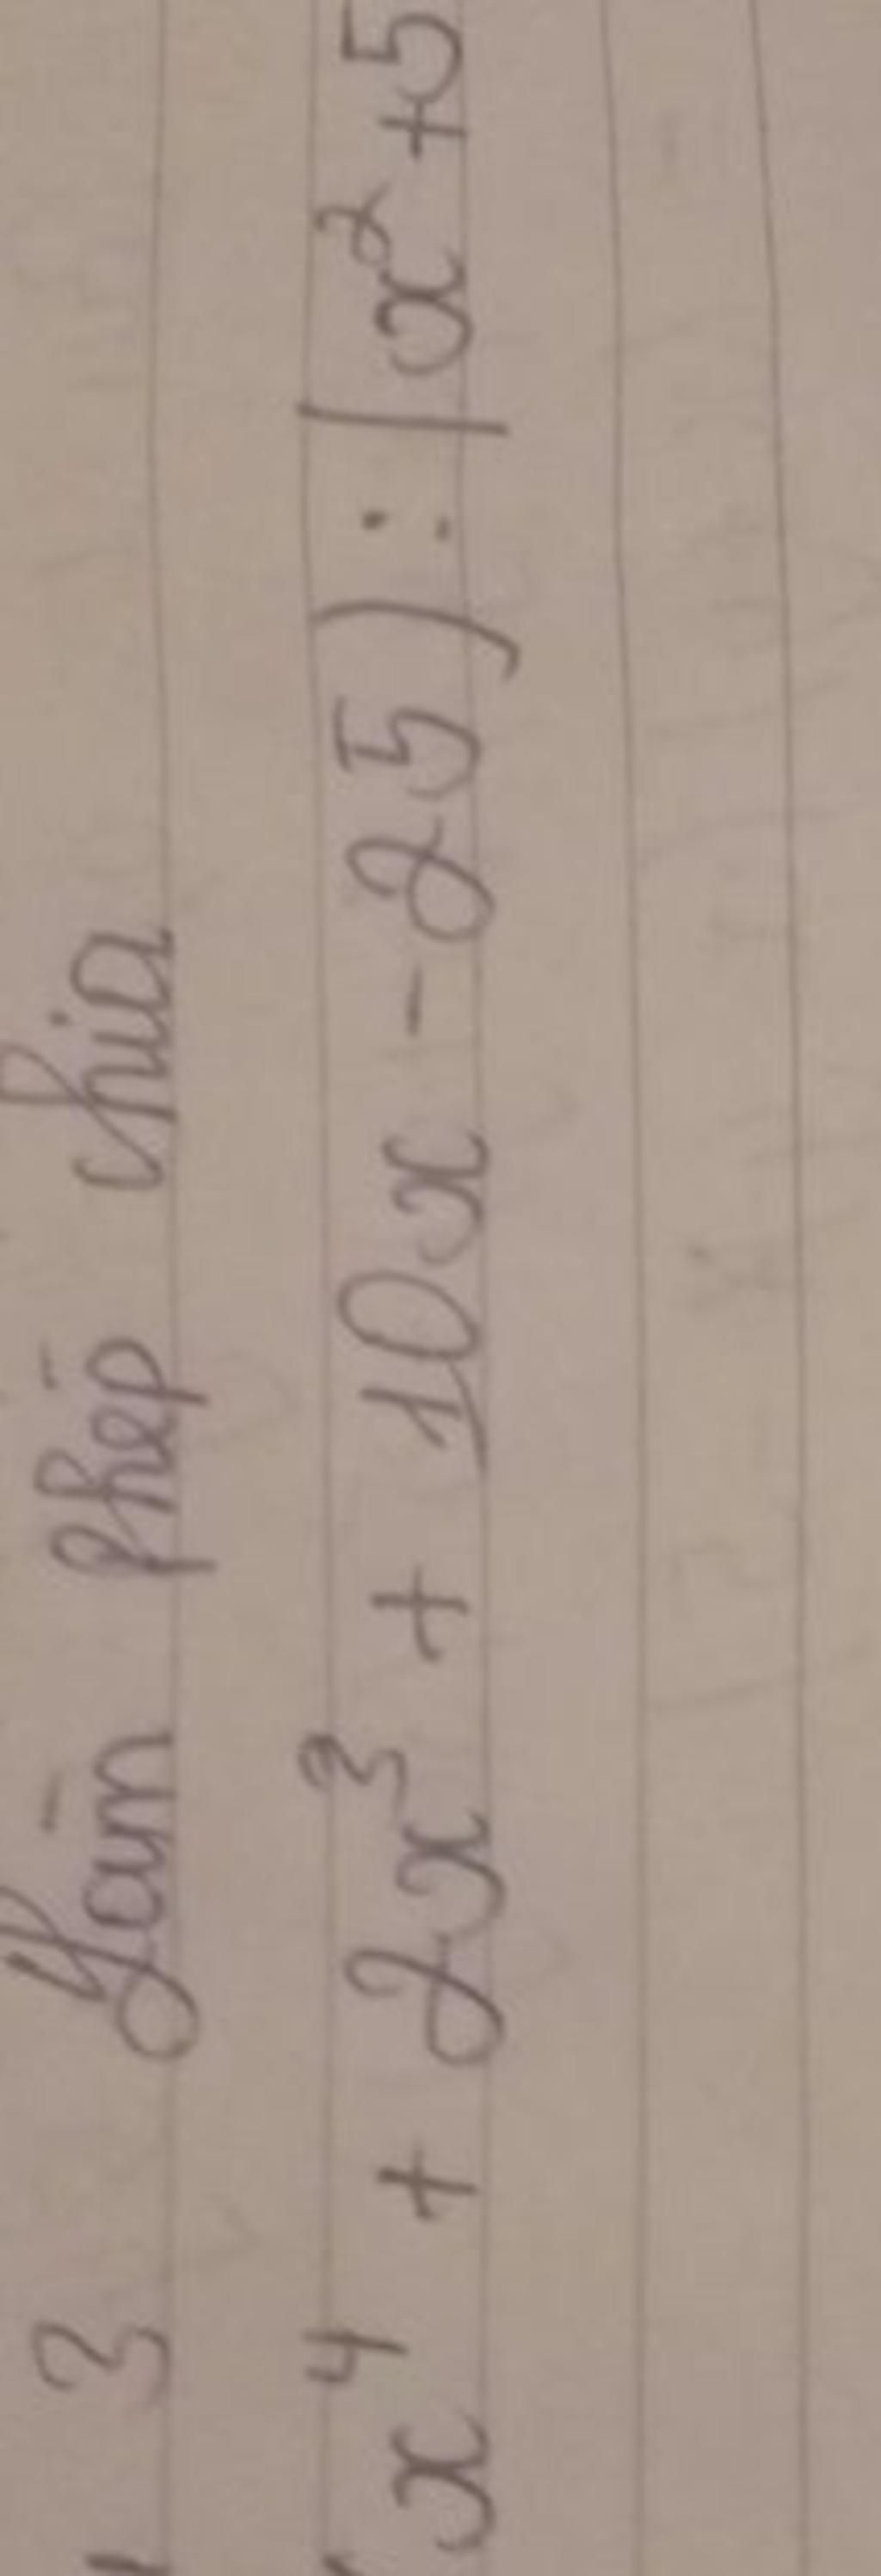 3 Làm phép chia
(x⁴ + 2x³ + 10x - 25) : (x² + 5